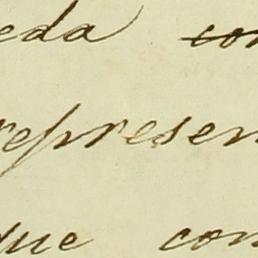 eda con
represen
que con